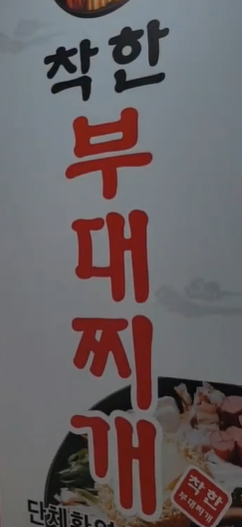 착한
부대찌개
착한
부대찌개
단체환영